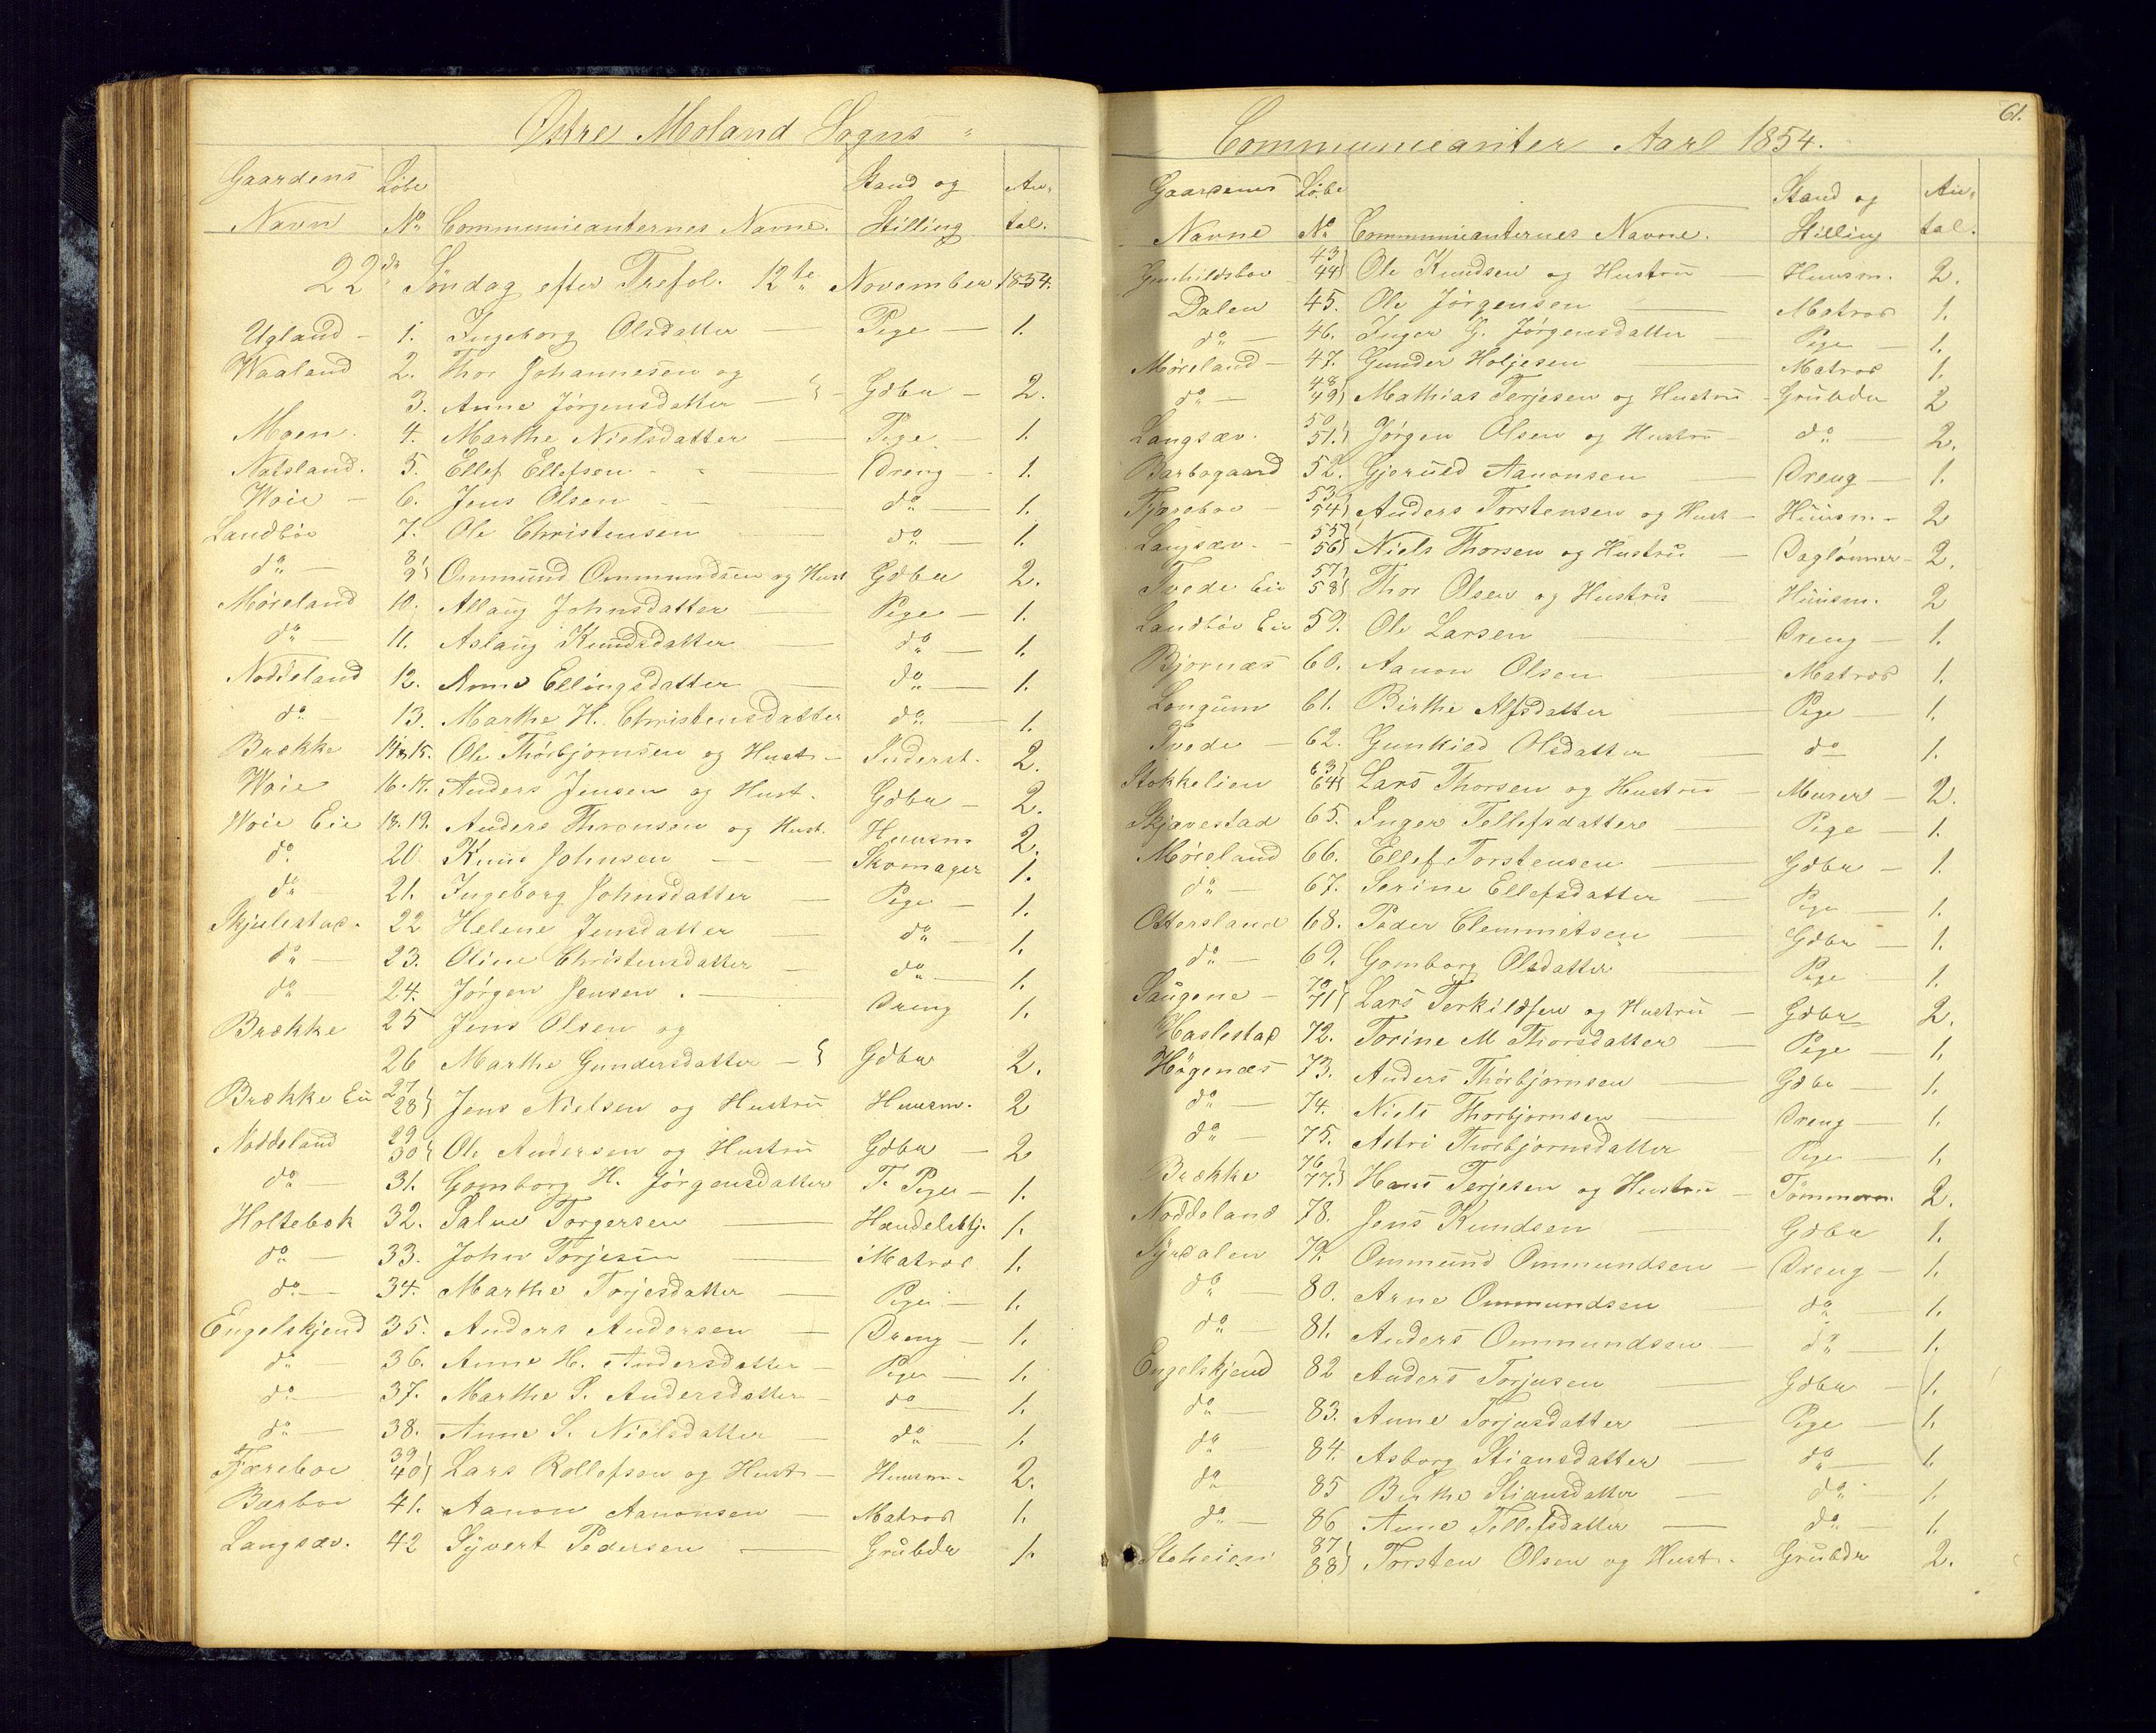 Østre Moland Sogns "
Gaardens Løbe Stand og An-
Navn No Communicanternes Navne. Stilling tal.
22de Søndag efter Trefol. 12te November 1854.
Ugland - 1. Ingeborg Olsdatter — Pige — 1.
Waaland 2. Thor Johannesen og
3. Anne Jørgensdatter — } - Gdbr — 2.
Moen. 4. Marthe Nielsdatter — Pige 1.
Natsland. 5. Ellef Ellefsen - Dreng - 1.
Woie - 6. Jens Olsen - do — 1.
Landbøe 7. Ole Christensen — do — 1.
do — 8 9} Ommund Ommundsen og Hust Gdbr 2.
Møreland 10. Allaug Johnsdatter — Pige — 1.
do — 11. Aslaug Knudsdatter — do — 1.
Noddeland 12. Anne Ellingsdatter — do — 1.
do - 13. Marthe H. Christensdatter do — 1.
Brække 14 & 15. Ole Thorbjornsen og Hust - Inderst. 2.
Woie 16.17. Anders Jensen og Hust. Gdbr — 2.
Woie Eie 18.19. Anders Thronsen og Hust. Huusm 2.
do. 20. Knud Johnsen — Skomager 1.
do - 21. Ingeborg Johnsdatter — Pige — 1.
Skjulestad. 22 Helene Jensdatter — do 1.
do — 23. Oline Christensdatter — do — 1.
do — 24. Jørgen Jensen . — Dreng 1.
Brække 25 Jens Olsen og
26 Marthe Gundersdatter — } Gdbr 2.
Brække Eie 27 28} Jens Nielsen og Hustru Huusm. 2
Noddeland 29 30} Ole Andersen og Hustru Gdbr — 2
do — 31. Gomborg H. Jørgensdatter T. Pige — 1.
Holtebek 32. Salve Torgersen — Handelsbtj. 1.
do — 33. John Torjesen — Matros 1.
do — 34. Marthe Torjesdatter — Pige — 1.
Engelskjend 35. Anders Andersen — Dreng — 1.
do — 36. Anne H. Andersdatter — Pige — 1.
do — 37. Marthe S. Andersdatter do 1.
do — 38. Anne S. Nielsdatter — do — 1.
Fjæreboe 39 40} Lars Rollefsen og Hust - Huusm. 2.
Bærboe 41. Aanon Aanonsen — Matros 1.
Langsæv. 42 Syvert Pedersen — Grubdr 1.
61.
Communicanter Aarl 1854.
Gaardenes Løbe Stand og An-
Navne No Communicanternes Navne. Stilling tal.
Gunhildsboe 43 44} Ole Knudsen og Hustru — Huusm. 2.
Dalen 45. Ole Jørgensen — Matros 1.
do — 46. Inger G. Jørgensdatter — Pige — 1.
Møreland — 47. Gunder Holjesen — Matros 1.
do — 48 49} Mathias Terjesen og Hustru - Grubdr 2
Langsæv. 50 51.} Jørgen Olsen og Hustru - do — 2.
Barbogaard 52. Gjeruld Aanonsen — Dreng — 1.
Fjæreboe — 53 54} Anders Torstensen og Hust — Huusm - 2
Langsæv - 55 56} Niels Thorsen og Hustru — Daglønner - 2.
Tvede Eie 57 58} Thor Olsen og Hustru — Huusm. 2
Landbøe Eie 59. Ole Larsen — Dreng — 1.
Bjornæs 60. Aanon Olsen — Matros 1.
Longum 61. Birthe Alfsdatter — Pige — 1.
Tvede — 62. Gunhild Olsdatter — do 1.
Stokkelien 63 64} Lars Thorsen og Hustru — Murer — 2.
Skjævestad 65. Inger Tellefsdattere — Pige — 1.
Møreland 66. Ellef Torstensen — Gdbr — 1.
do — 67. Serine Ellefsdatter — Pige — 1.
Ottersland 68. Peder Clemmetsen — Gdbr — 1.
do — 69. Gomborg Olsdatter — Pige 1.
Saugene — 70 71} Lars Terkildsen og Hustru — Gdbr 2.
Haslestad 72. Torine M Thorsdatter — Pige — 1.
Høgenæs 73. Anders Thorbjornsen — Gdbr — 1.
do — 74. Niels Thorbjornsen — Dreng — 1.
do — 75. Astri Thorbjornsdatter — Pige — 1.
Brække 76 77.} Hans Terjesen og Hustru — Tømmerm. 2.
Noddeland 78. Jens Knudsen — Gdbr 1.
Syrdalen 79. Ommund Ommundsen — Dreng — 1.
do — 80. Arne Ommundsen — do 1.
do — 81. Anders Ommundsen — do 1.
Engelskjend 82 Anders Torjusen — Gdbr — 1.
do — 83. Anne Torjusdatter — Pige — 1.
do — 84. Asborg Stiansdatter — do 1.
do 85 Birthe Stiansdatter — do 1.
do — 86 Anne Tellefsdatter — do — 1.
Stoheien 87 88} Torsten Olsen og Hust. Grubdr 2.